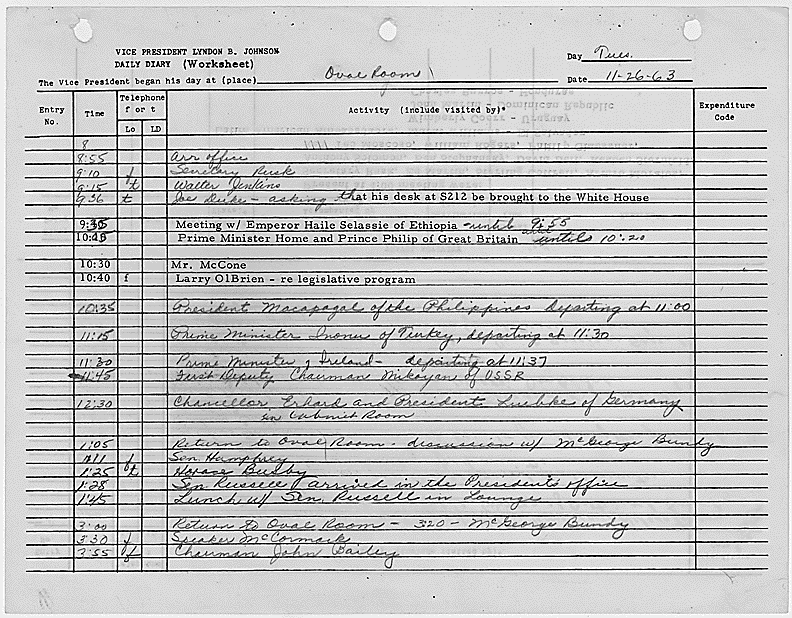 VICE PRESIDENT LYNDON B. JOHNSON
DAILY DIARY (Worksheet)
Day Tues.
The Vice President began his day at (place) Oval Room
Date 11-26-63
Entry No. Time Telephone f or t Lo LD Activity (include visited by)* Expenditure Code
8
8:55 arr office
9:10 f Secretary Rusk
9:15 t Walter Jenkins
9:36 t Joe Duke - asking that his desk at S212 be brought to the White House
9:35 Meeting w/ Emperor Haile Selassie of Ethiopia until 9:55
Prime Minister Home and Prince Philip of Great Britain until 10:20
10:30 Mr. McCone
10:40 f Larry OlBrien - re legislative program
10:35 President Macapagal of the Philippines departing at 11:00
11:15 Prime Minister Inonu of Turkey, departing at 11:30
11:30 Prime Minister of Ireland - departing at 11:37
11:45 First Deputy Chairman Mikoyan of USSR
12:30 Chancellor Erhard and President Luebke of Germany
in Cabinet Room
1:05 Return to Oval Room - discussion w/ McGeorge Bundy
1:11 f Sen Humphrey
1:25 t Horace Busby
1:28 Sen Russell arrived in the President's office
1:45 Lunch w/ Sen. Russell in Lounge
3:00 Return to Oval Room - 320 - McGeorge Bundy
3:30 f Speaker McCormack
3:55 f Chairman John Bailey